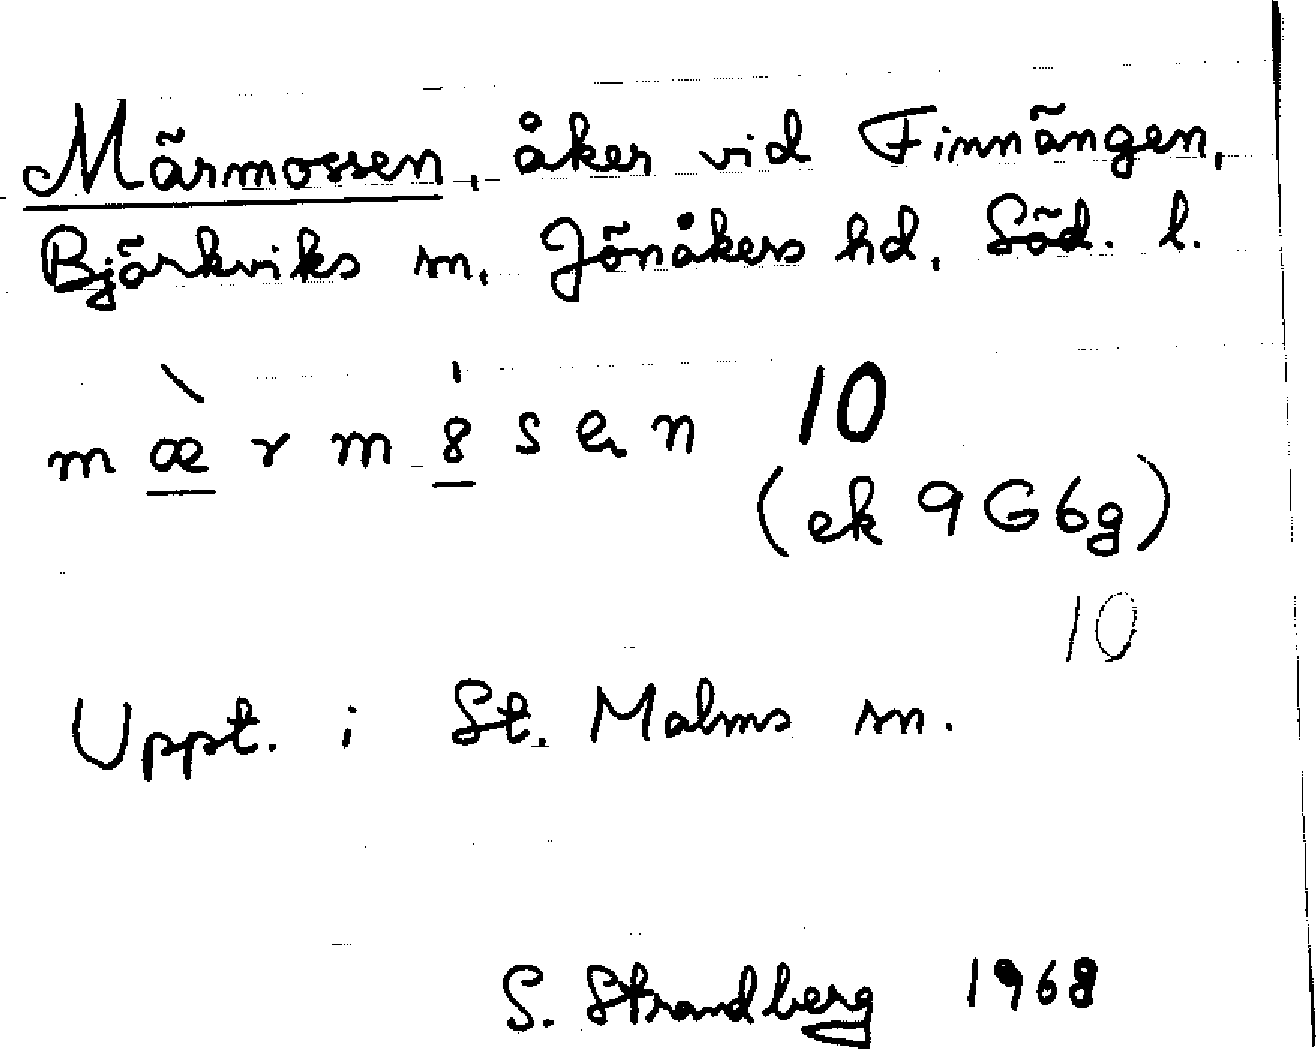 Märmossen, åker vid Finnängen,
Björkviks sn, Jönåkers hd, Söd. l.
m æ̀ r m 8̍ s e n 10
(ek 9G6g)
10
Uppt. i St. Malms sn.
S. Strandberg 1968